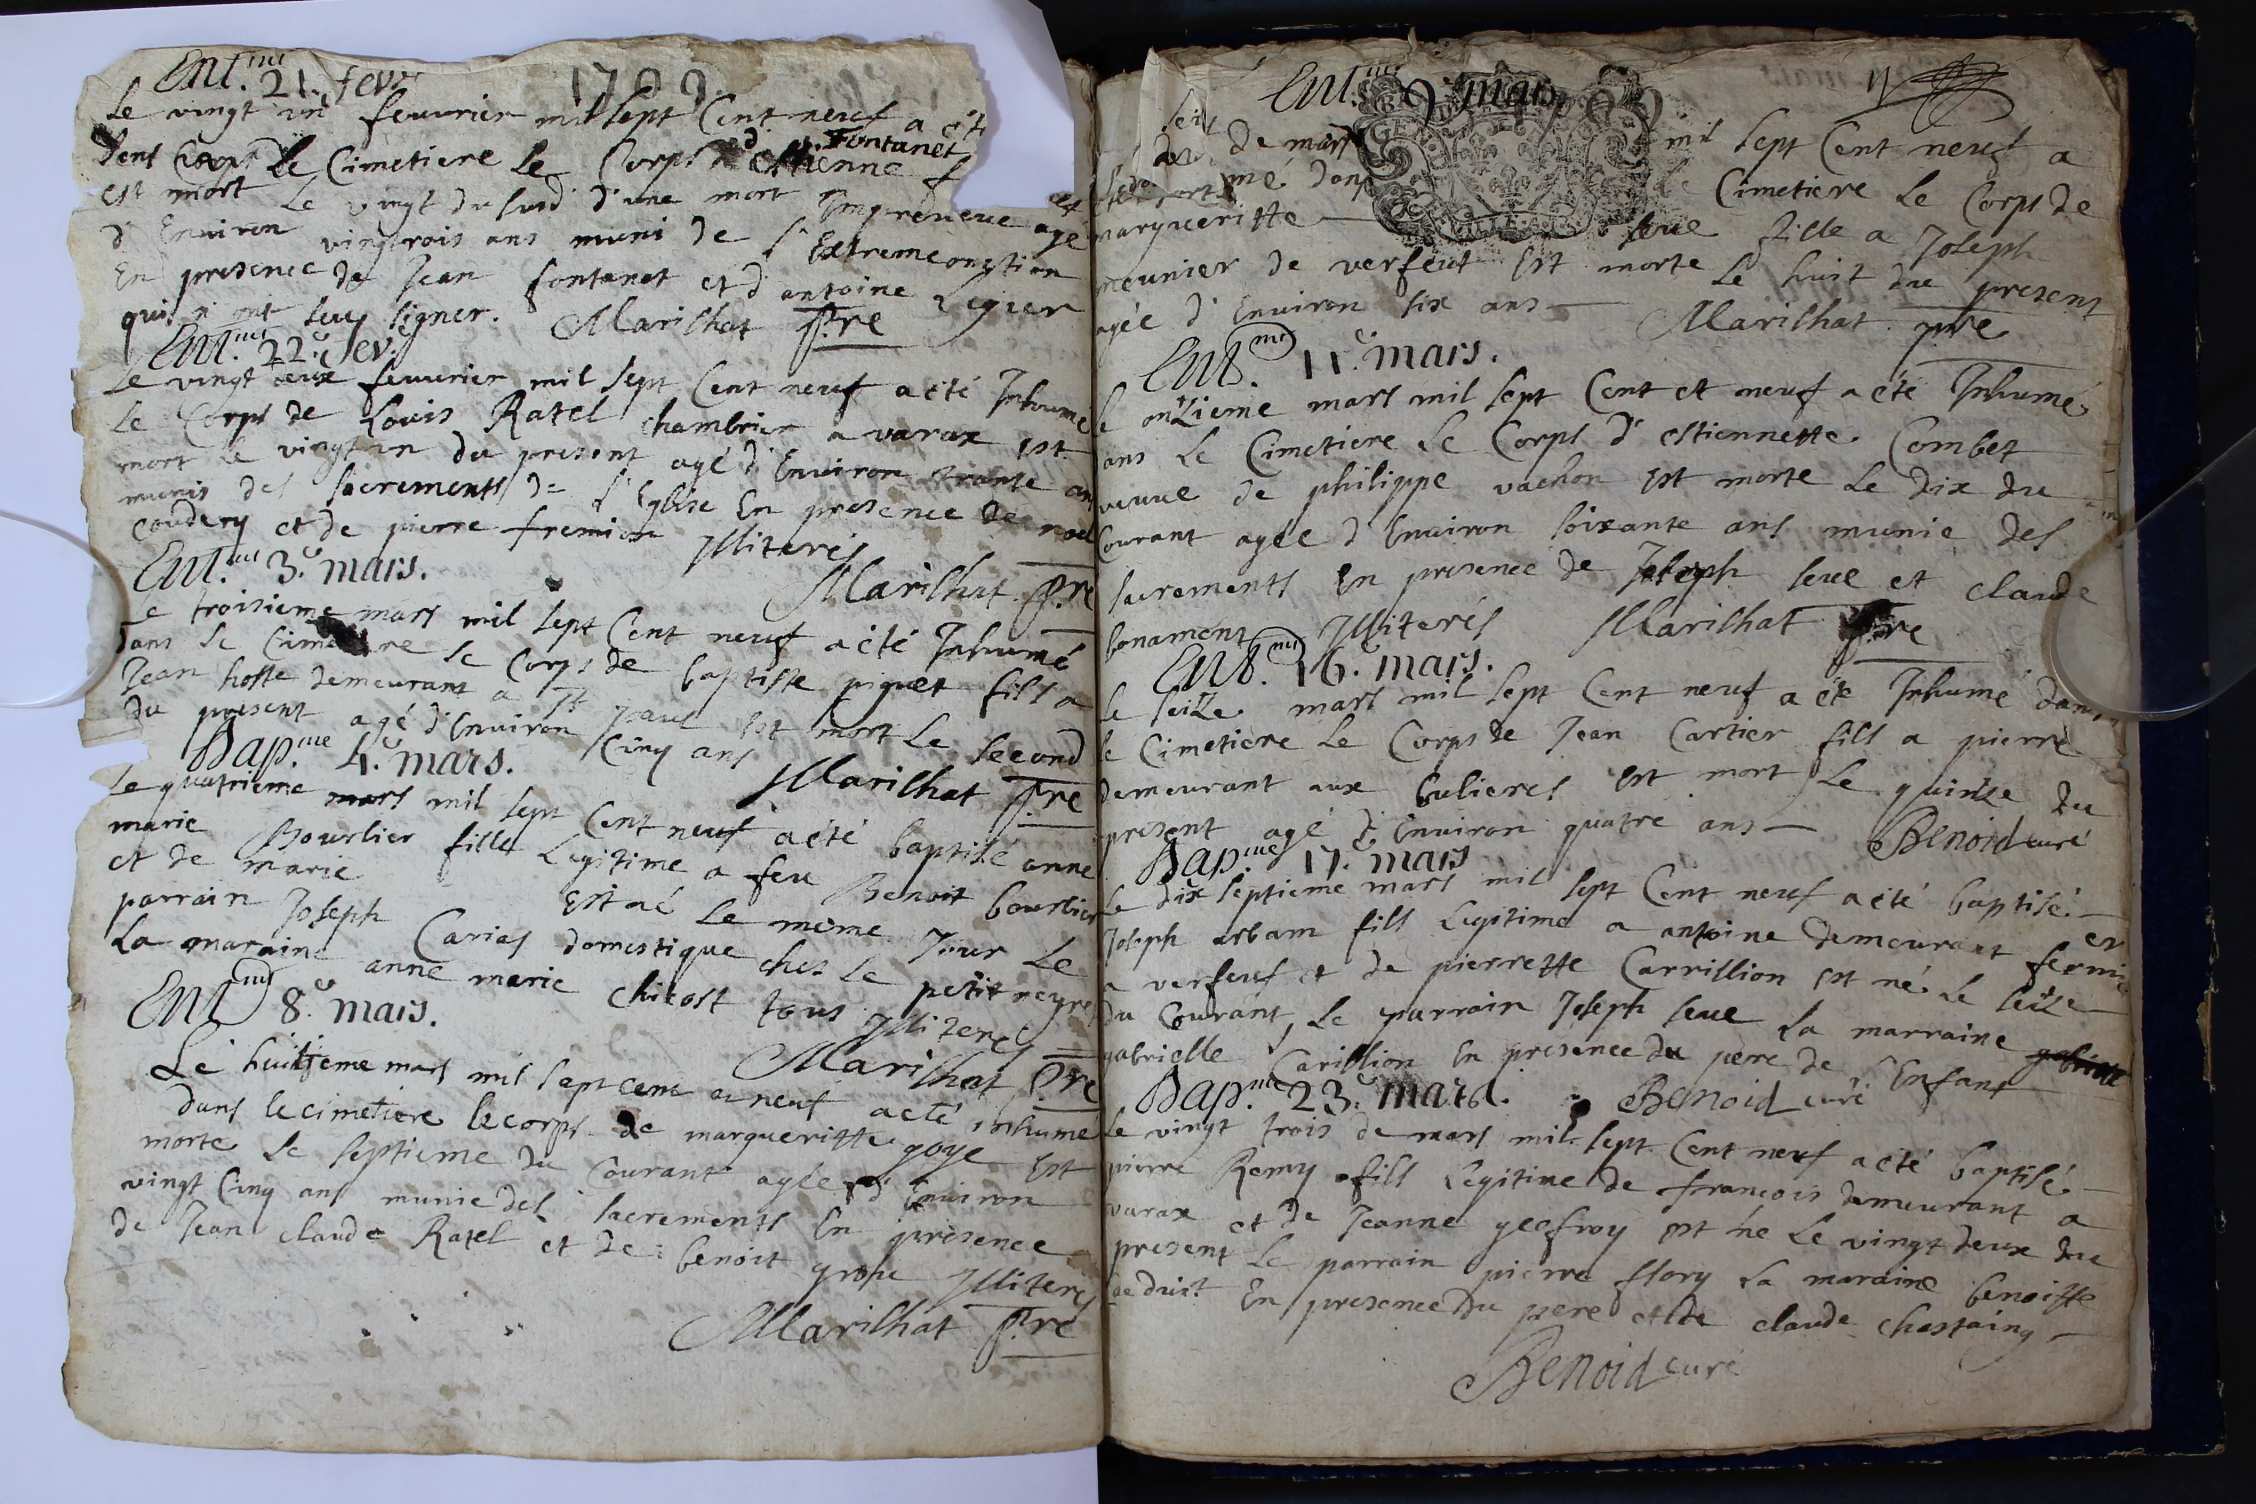 Ent.mt 21. fevr 1709.
Le vingt un feuvrier mil sept Cent neuf a été
dens Le Cimetiere Le Corps d'estienne fontanet
est mort Le vingt du susd d'une mort Impreveue agé
d'Environ vingtrois ans muni de l'Extremeonction
En presence de Jean fontanet et d'antoine Leguer
qui n'ont seu signer. Marilhat p.re
Ent.mt 22.e fev.
Le vingt deux feuvrier mil sept Cent neuf a été Inhumé
Le Corps de Louis Ratel chambrier a varax est
mort Le vingt un du present agé d'Environ trante ans
munis des sacrements de l'Eglise En presence de noel
coudery et de pierre fremion Illiterés
Marilhat p.re
Ent.mt 3.e mars.
Le troisieme mars mil sept Cent neuf a été Inhumé
dans Le Cimetiere Le Corps de baptiste piquet fils a
Jean hoste demeurant a St paul est mort Le second
du present agé d'Environ Cinq ans
Marilhat p.re
Bap.me 4.e mars.
Le quatrieme mars mil sept Cent neuf a été baptisé anne
marie Bourlier fille Legitime a feu Benoit bourlier
et de marie est né Le meme Jour Le
parrain Joseph Carias domestique ches Le petit neyre
La maraine anne marie chicost tous Illiterés
Marilhat p.re
Ent.mt 8.e mars.
Le huitieme mars mil sept cent et neuf a eté inhumé
dans le cimetiere le corps de margueritte goye Est
morte Le septieme du Courant agée d'Environ
vingt Cinq ans munie des sacrements En presence
de Jean claude Ratel et de benoit Illiterés
Marilhat p.re
Ent.mt 9.e mars
de mars mil sept Cent neuf a
dans Le Cimetiere Le Corps de
margueritte seve fille a Joseph
meunier de verfeut Est morte Le huit du present
agée d'Environ six ans — Marilhat p.re
Ent.mt 11.e mars.
Le onzieme mars mil sept Cent et neuf a été Inhumé
dans Le Cimetiere Le Corps d'estiennette Combet
veuve de philippe vachon est morte Le dix du
Courant agée d'Environ soixante ans munie des
sacrements En presence de Joseph seve et claude
bonament Illiterés Marilhat p.re
Ent.mt 16.e mars.
Le seize mars mil sept Cent neuf a été Inhumé dans
Le Cimetiere Le Corps de Jean Cartier fils a pierre
demeurant aux bulieres est mort Le quinze du
present agé d'Environ quatre ans — Benoid curé
Bap.me 17.e mars
Le dix septieme mars mil sept Cent neuf a été baptisé —
Joseph arbam fils Legitime a antoine demeurant fermier
a verfeuf et de pierrette Carrillion est né Le seize
du Courant, Le parrain Joseph seve La marraine
gabrielle Carillion En presence du pere de l'Enfant
Benoid curé
Bap.me 23.e mars.
Le vingt trois de mars mil sept Cent neuf a été baptisé —
pierre Remy fils Legitime de francois demeurant a
varax et de Jeanne geofroy est né Le vingt deux du
present Le parrain pierre flory La maraine benoiste
beduit En presence du pere et de claude chastaing —
Benoid curé